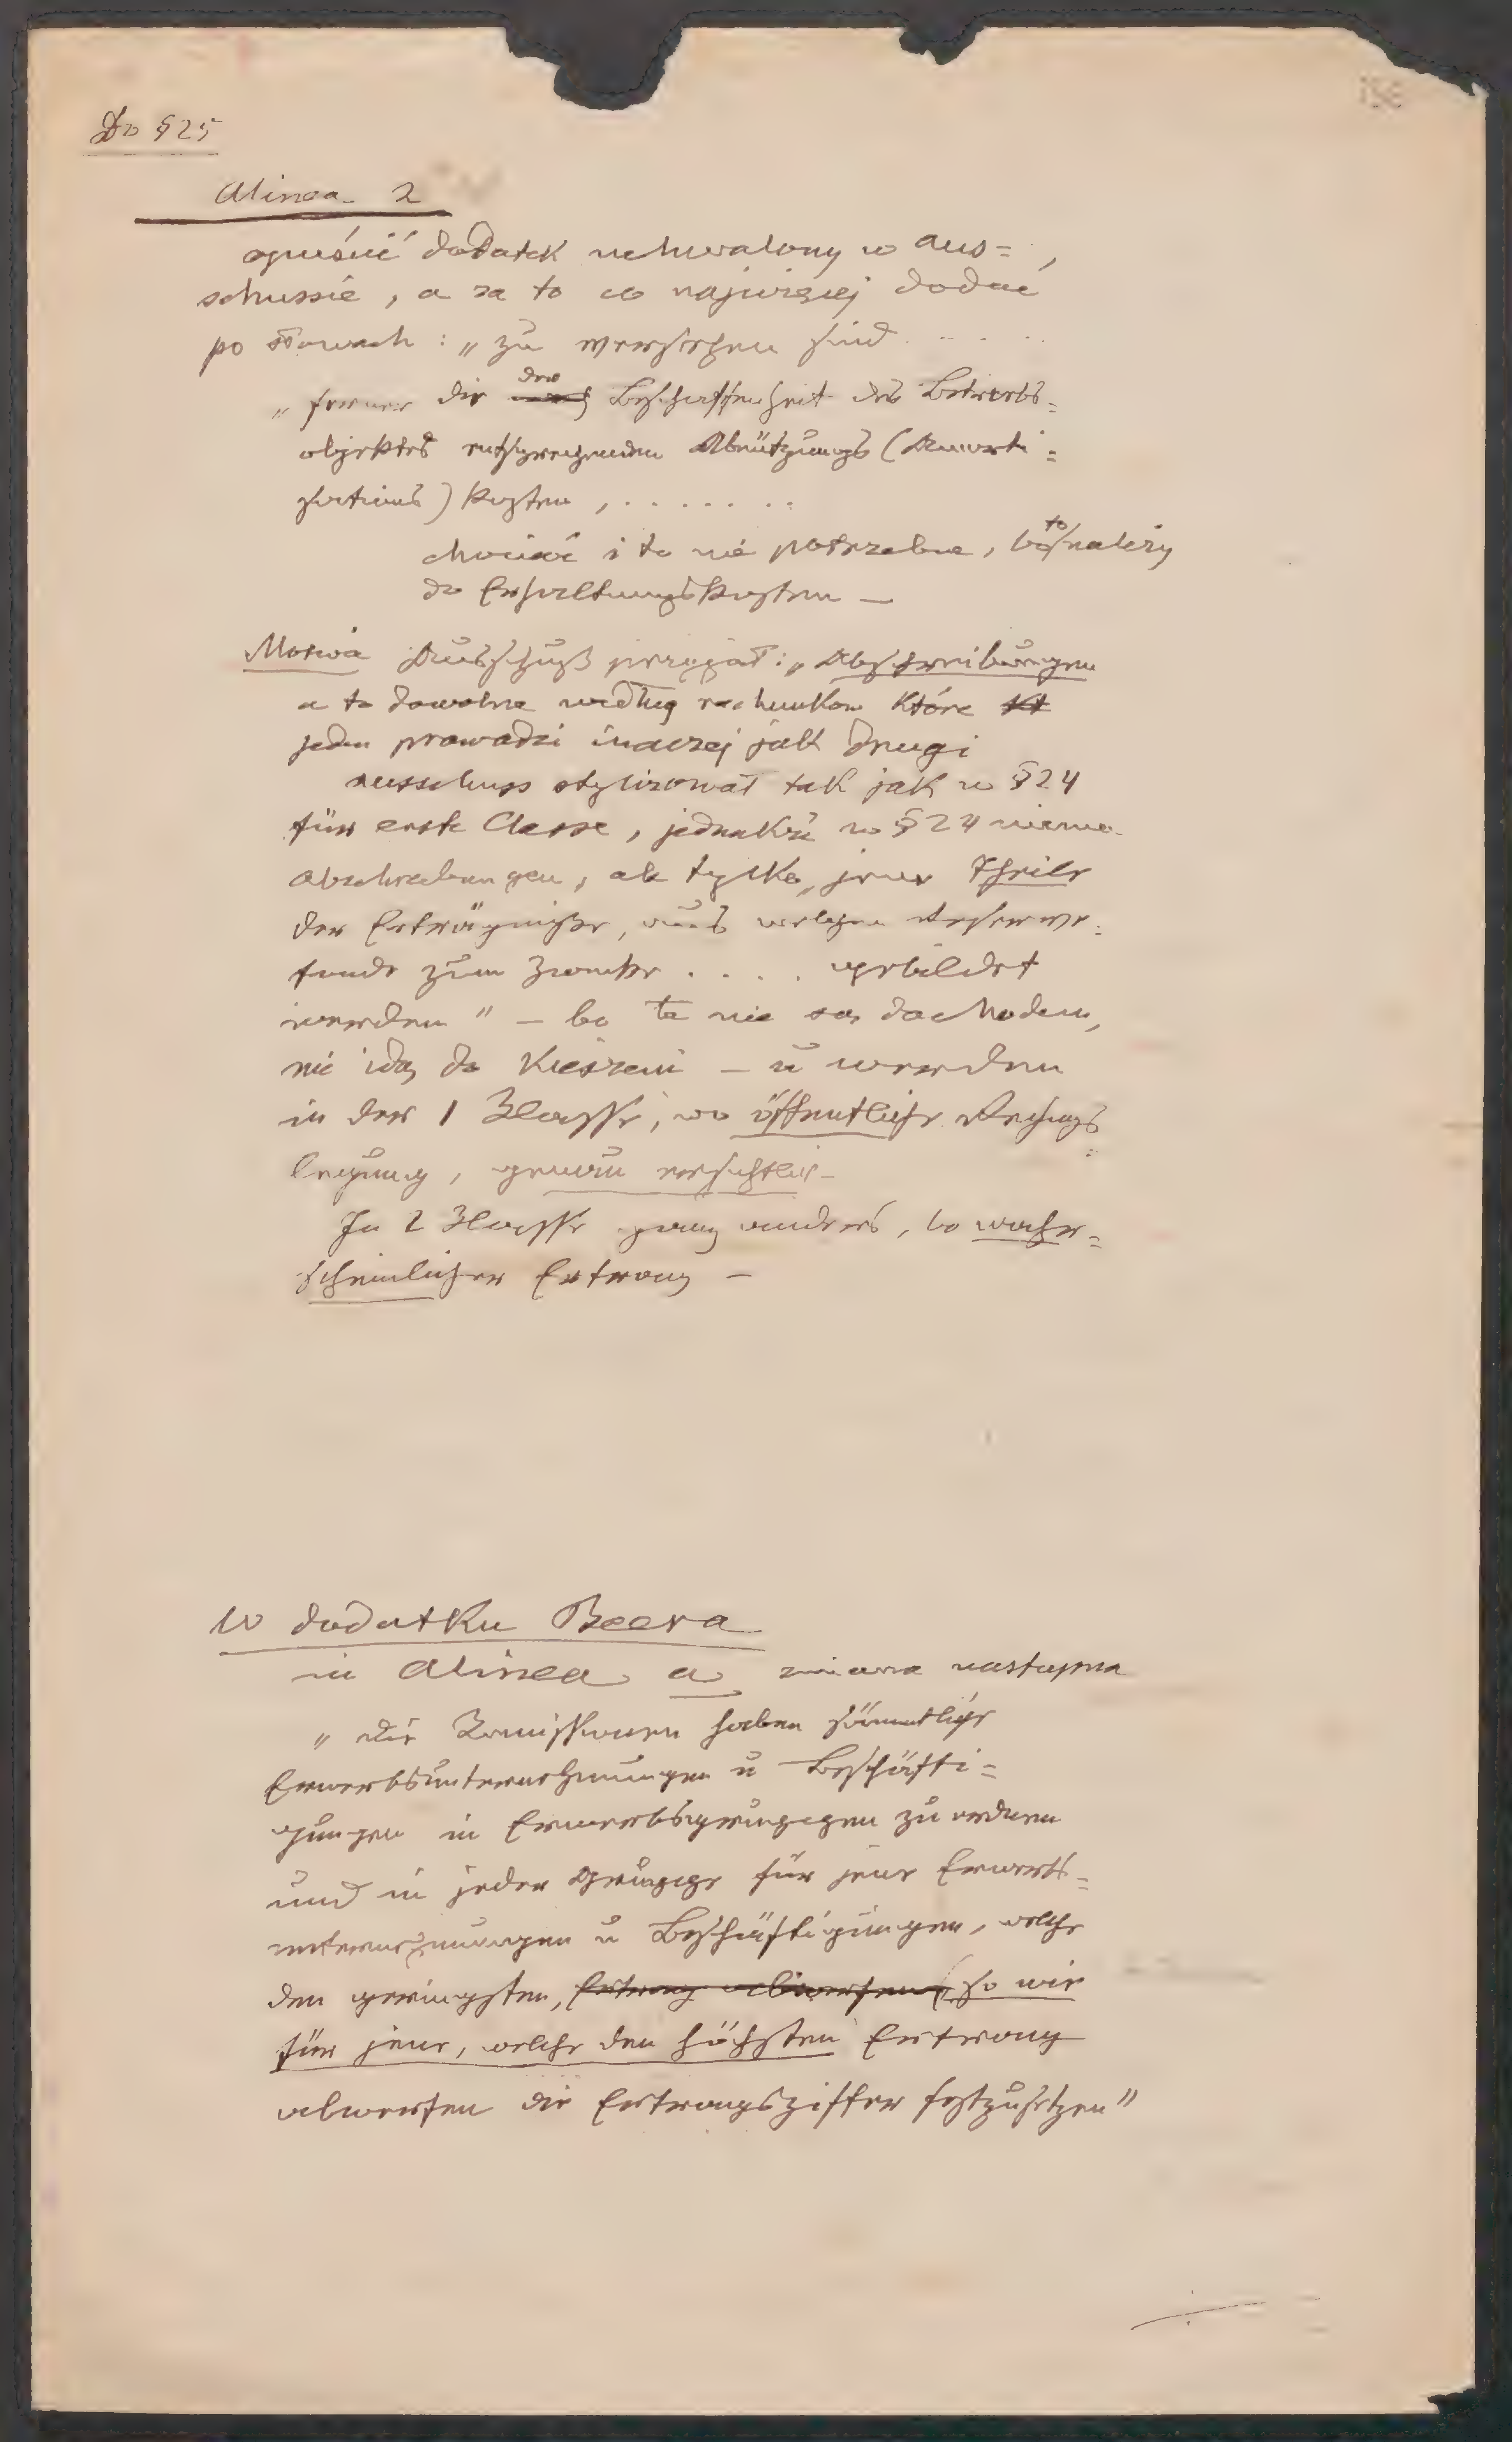 Do § 25
Alinea 2
opuścić dodatek uchwalony w aus=
schussie, a za to co najwięcej dodać
po słowach: „zu verstehen sind . . . .
„ferner die der Beschaffenheit des Betriebs=
objektes entsprechenden Abnützungs (Amorti=
sations) kosten, . . . . . . .
chociaż i to nie potrzebne, bo to należy
do Erhaltungskosten —
Motiva Ausschuß przyjął: „Abschreibungen
a to dowolne według rachunków które kt
jeden prowadzi inaczej jak drugi
ausschuss stylizował tak jak w § 24
für erste Classe, jednakże w § 24 niema
abschreibungen, ale tylko „jener Theile
der Erträgnisse, aus welchen Reserve=
fonde zum Zwecke . . . . gebildet
werden" — bo te nie są dochodem,
nie idą do kieszeni — u werden
in der 1 Klasse, wo öffentliche Rechnungs
legung, genau ersichtlich —
In 2 Klasse ganz anders, bo wahr=
scheinlicher Ertrag —
W dodatku Beera
in Alinea a zmiana następna
„Die Kommissionen haben sämmtliche
Erwerbsunternehmungen u Beschäfti=
gungen in Erwerbsgruppen zu ordnen
und in jeder Gruppe für jene Erwerbs=
unternehmungen u Beschäftigungen, welche
den geringsten, Ertrag abwerfen, so wie
für jene, welche den höchsten Ertrag
abwerfen die Ertragsziffer festzusetzen"